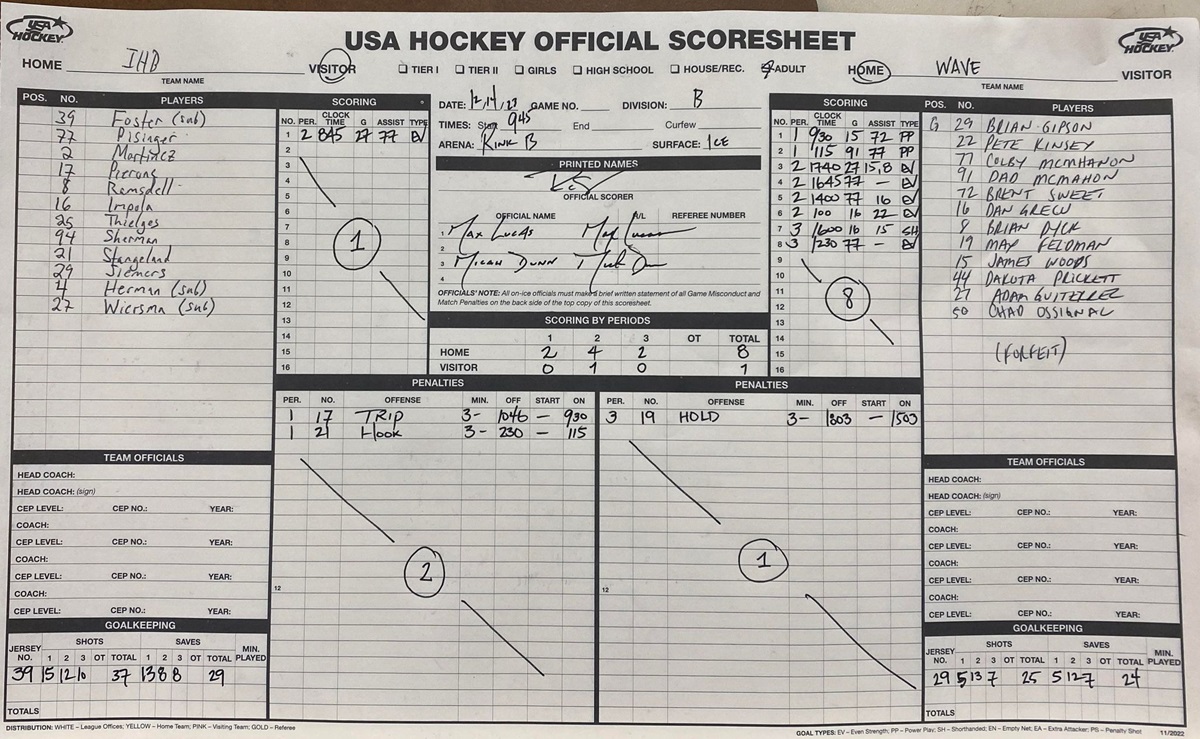 USA HOCKEY
USA HOCKEY OFFICIAL SCORESHEET
USA HOCKEY
HOME IHB VISITOR
TEAM NAME
TIER I TIER II GIRLS HIGH SCHOOL HOUSE/REC. ADULT
HOME WAVE VISITOR
TEAM NAME
POS. NO. PLAYERS
39 Foster (sub)
77 Pisinger
2 Martinez
17 Pierong
8 Ramsdell
16 Impola
25 Thielges
94 Sherman
21 Stangeland
29 Siemers
4 Herman (sub)
27 Wiersma (sub)
SCORING
NO. PER. CLOCK TIME G ASSIST TYPE
1 2 845 27 77 EV
2
3
4
5
6
7
8
9
10
11
12
13
14
15
16
1
DATE: 12/14/23 GAME NO. DIVISION: B
TIMES: Start 945 End Curfew
ARENA: RINK B SURFACE: ICE
PRINTED NAMES
OFFICIAL SCORER
OFFICIAL NAME A/L REFEREE NUMBER
1 MAX LUCAS
2
3 MICAH DUNN
4
OFFICIALS' NOTE: All on-ice officials must make a brief written statement of all Game Misconduct and
Match Penalties on the back side of the top copy of this scoresheet.
SCORING BY PERIODS
1 2 3 OT TOTAL
HOME 2 4 2 8
VISITOR 0 1 0 1
SCORING
NO. PER. CLOCK TIME G ASSIST TYPE
1 1 930 15 72 PP
2 1 115 91 77 PP
3 2 1740 27 15,8 EV
4 2 1645 77 — EV
5 2 1400 77 16 EV
6 2 100 16 22 EV
7 3 1600 16 15 SH
8 3 1230 77 — EV
9
10
11
12
13
14
15
16
8
POS. NO. PLAYERS
G 29 BRIAN GIPSON
22 PETE KINSEY
77 COLBY MCMAHANON
91 DAD MCMAHON
72 BRENT SWEET
16 DAN GREW
8 BRIAN DYCK
19 MAX FELDMAN
15 JAMES WOODS
44 DAKOTA PRICKETT
27 ADAM GUITERREZ
50 CHAD OSSIGNAL
(FORFEIT)
PENALTIES
PER. NO. OFFENSE MIN. OFF START ON
1 17 TRIP 3- 1046 — 930
1 21 Hook 3- 230 — 115
12
2
PENALTIES
PER. NO. OFFENSE MIN. OFF START ON
3 19 HOLD 3- 1803 — 1503
12
1
TEAM OFFICIALS
HEAD COACH:
HEAD COACH: (sign)
CEP LEVEL: CEP NO.: YEAR:
COACH:
CEP LEVEL: CEP NO.: YEAR:
COACH:
CEP LEVEL: CEP NO.: YEAR:
COACH:
CEP LEVEL: CEP NO.: YEAR:
GOALKEEPING
SHOTS SAVES
JERSEY NO. 1 2 3 OT TOTAL 1 2 3 OT TOTAL MIN. PLAYED
39 15 12 10 37 13 8 8 29
TOTALS
TEAM OFFICIALS
HEAD COACH:
HEAD COACH: (sign)
CEP LEVEL: CEP NO.: YEAR:
COACH:
CEP LEVEL: CEP NO.: YEAR:
COACH:
CEP LEVEL: CEP NO.: YEAR:
COACH:
CEP LEVEL: CEP NO.: YEAR:
GOALKEEPING
SHOTS SAVES
JERSEY NO. 1 2 3 OT TOTAL 1 2 3 OT TOTAL MIN. PLAYED
29 5 13 7 25 5 12 7 24
TOTALS
DISTRIBUTION: WHITE – League Offices; YELLOW – Home Team; PINK – Visiting Team; GOLD – Referee
GOAL TYPES: EV – Even Strength; PP – Power Play; SH – Shorthanded; EN – Empty Net; EA – Extra Attacker; PS – Penalty Shot 11/2022